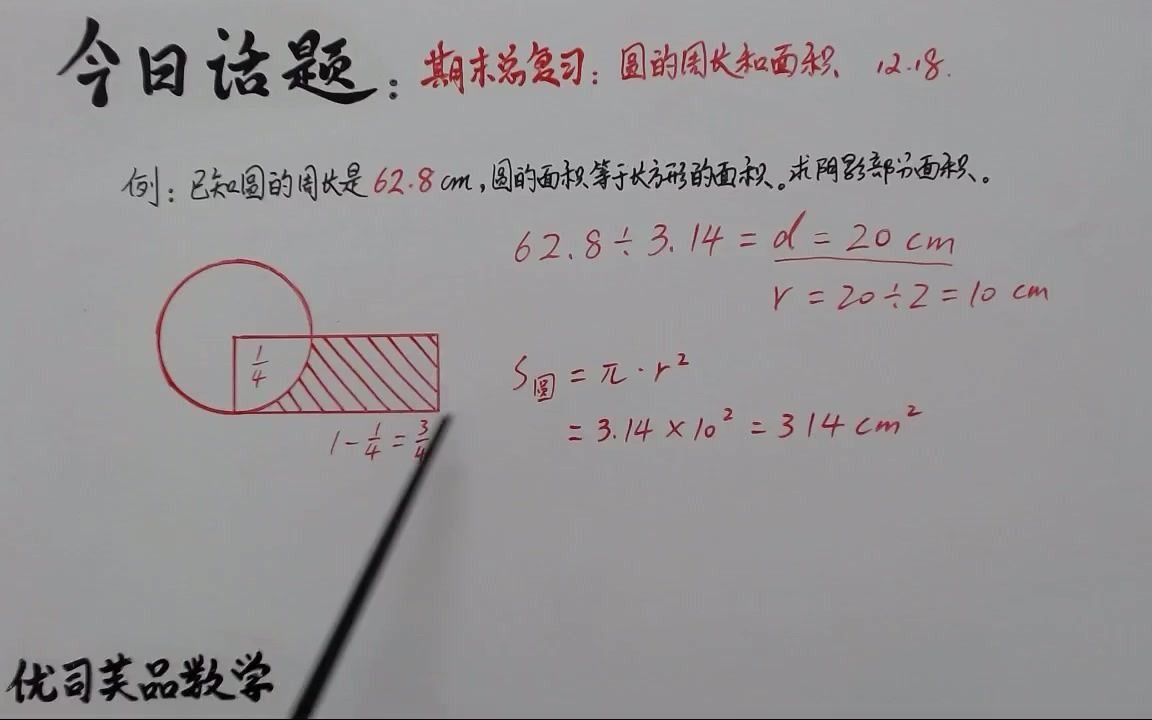 今日话题：期末总复习：圆的周长和面积 12.18.
例：已知圆的周长是62.8cm，圆的面积等于长方形的面积。求阴影部分面积。
62.8÷3.14=d=20 cm
r=20÷2=10 cm
1/4
S圆=π·r²
=3.14×10²=314cm²
1-1/4=3/4
优司芙品数学